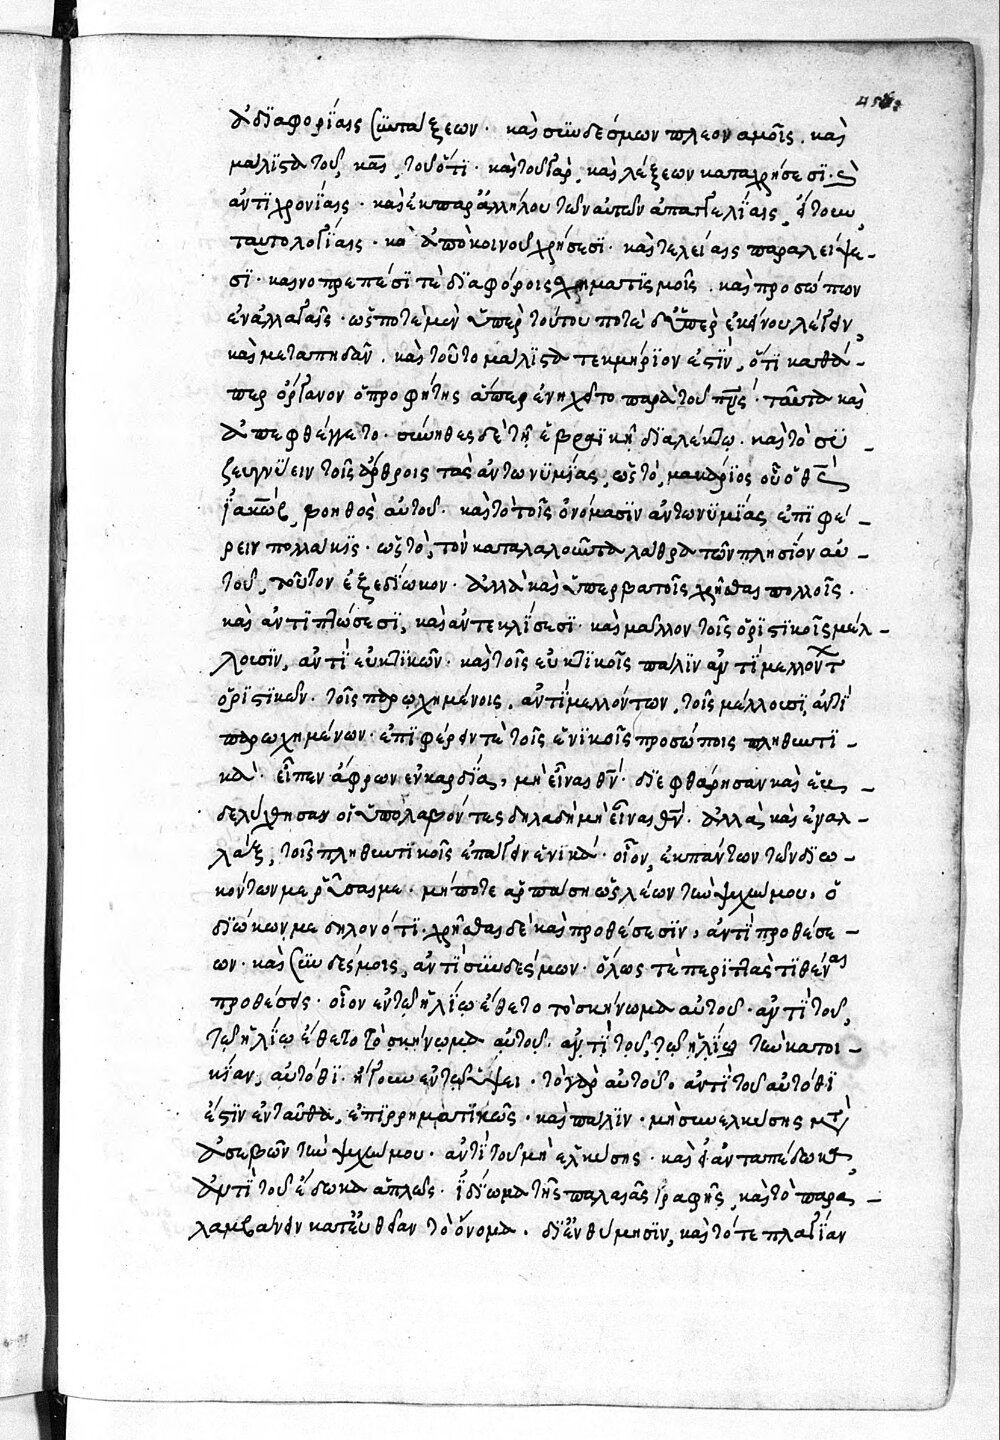 ἀδιαφορίαις συντάξεων· καὶ συνδέσμων πλεονασμοῖς, καὶ
μάλιστα τοῦ, καὶ, τοῦ ὅτι· καὶ τοῦ γάρ, καὶ λέξεων καταχρήσεσι· καὶ
ἀντιχρονίαις· καὶ ἐκ παραλλήλου τῶν αὐτῶν ἀπαγγελίαις, ἤτουν,
ταυτολογίαις· καὶ ἀπὸ κοινοῦ χρήσεσι· καὶ τελείαις παραλείψε-
σι· καινοπρεπέσί τε διαφόροις χρηματισμοῖς, καὶ προσώπων
ἐναλλαγαῖς· ὡς ποτὲ μὲν ὑπὲρ τούτου ποτὲ δ' ὑπὲρ ἐκείνου λέγειν,
καὶ μεταπηδᾶν, καὶ τοῦτο μάλιστα τεκμήριόν ἐστιν, ὅτι καθά-
περ ὄργανον ὁ προφήτης ἅπερ ἐνηχεῖτο παρὰ τοῦ πνς· ταῦτα καὶ
ἀπεφθέγγετο· σύνηθες δὲ τῇ ἑβραϊκῇ διαλέκτῳ· καὶ τὸ συ-
ζευγνύειν τοῖς ἄρθροις τὰς ἀντωνυμίας, ὡς τὸ, μακάριος οὗ ὁ θς
ἰακὼβ, βοηθὸς αὐτοῦ· καὶ τὸ τοῖς ὀνόμασιν ἀντωνυμίας ἐπιφέ-
ρειν πολλάκις· ὡς τὸ, τὸν καταλαλοῦντα λάθρα τῶν πλησίον αὐ-
τοῦ, τοῦτον ἐξεδίωκον· ἀλλὰ καὶ ὑπερβατοῖς χρῆσθαι πολλοῖς·
καὶ ἀντιπτώσεσι, καὶ ἀντεκλίσεσι· καὶ μᾶλλον τοῖς ὁριστικοῖς μέλ-
λουσιν, ἀντὶ εὐκτικῶν· καὶ τοῖς εὐκτικοῖς πάλιν ἀντὶ μελλόντ
ὁριστικῶν· τοῖς παρῳχημένοις, ἀντὶ μελλόντων, τοῖς μέλλουσι, ἀντὶ
παρῳχημένων· ἐπιφέρειν τὲ τοῖς ἑνικοῖς προσώποις πληθυντι-
κά· εἶπεν ἄφρων ἐν καρδίᾳ, μὴ εἶναι θν· διεφθάρησαν καὶ ἐβ-
δελύχθησαν οἱ ὑπολαβόντες δηλαδὴ μὴ εἶναι θν· ἀλλὰ καὶ ἐναλ-
λάξ, τοῖς πληθυντικοῖς ἐπάγειν ἑνικά· οἷον, ἐκ πάντων τῶν διω-
κόντων με ῥῦσαί με· μήποτε ἁρπάσῃ ὡς λέων τὴν ψυχήν μου, ὁ
διώκων με δηλονότι· χρῆσθαι δὲ καὶ προθέσεσιν, ἀντὶ προθέσε-
ων· καὶ συνδέσμοις, ἀντὶ συνδέσμων· ὅλως τὲ περιττὰς τιθέναι
προθέσεις· οἷον ἐν τῷ ἡλίῳ ἔθετο τὸ σκήνωμα αὐτοῦ· ἀντὶ τοῦ,
τῷ ἡλίῳ ἔθετο τὸ σκήνωμα αὐτοῦ· ἀντὶ τοῦ, τῷ ἡλίῳ τὴν κατοι-
κίαν, αὐτόθι· ἤγουν ἐν τῷ ὕψει· τὸ γὰρ αὐτοῦ, ἀντὶ τοῦ αὐτόθι
ἐστὶν ἐνταῦθα, ἐπιρρηματικῶς· καὶ πάλιν· μὴ συνελκύσῃς μετὰ
ἀσεβῶν τὴν ψυχήν μου· ἀντὶ τοῦ μὴ ἑλκύσῃς· καὶ ἀνταπέδωκε,
ἀντὶ τοῦ ἔδωκα ἁπλῶς· ἰδίωμα τῆς παλαιᾶς γραφῆς, καὶ τὸ παρα-
λαμβάνειν κατ' εὐθεῖαν τὸ ὄνομα, δι' ἐνθύμησιν, καὶ τό τε πλαγίαν